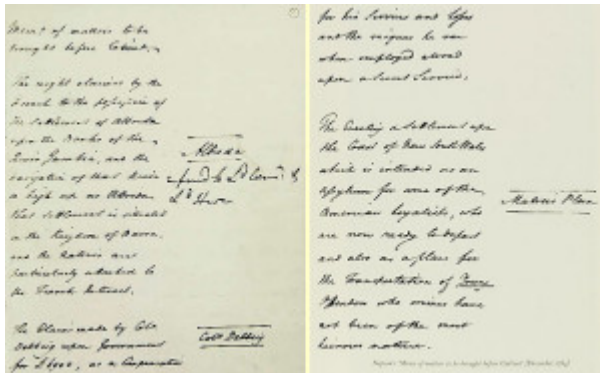 Memt. of matters to be
brought before Cabinet.
The right claimed by the
French to the possession of
the Settlement of Albreda
upon the Banks of the
River Gambia, and the
navigation of that River
as high up as Albreda
that settlement is situated
in the Kingdom of Barra,
and the Natives are
particularly attached to
the French Interest.
The Claim made by Colo.
Debbieg upon Government
for £4900, as a Compensation
Albreda
Ld. Howe
Colo. Debbieg
for his Services and Losses
and the risques he ran
when employed abroad
upon a Secret Service.
The Erecting a Settlement upon
the Coast of New South Wales
which is intended as an
Assylum for some of the
American Loyalists, who
are now ready to depart
and also as a place for
the Transportation of Young
Offenders who crimes have
not been of the most
heinous nature.
Matra's Plan
Nepean's 'Memo of matters to be brought before Cabinet' [December, 1784]